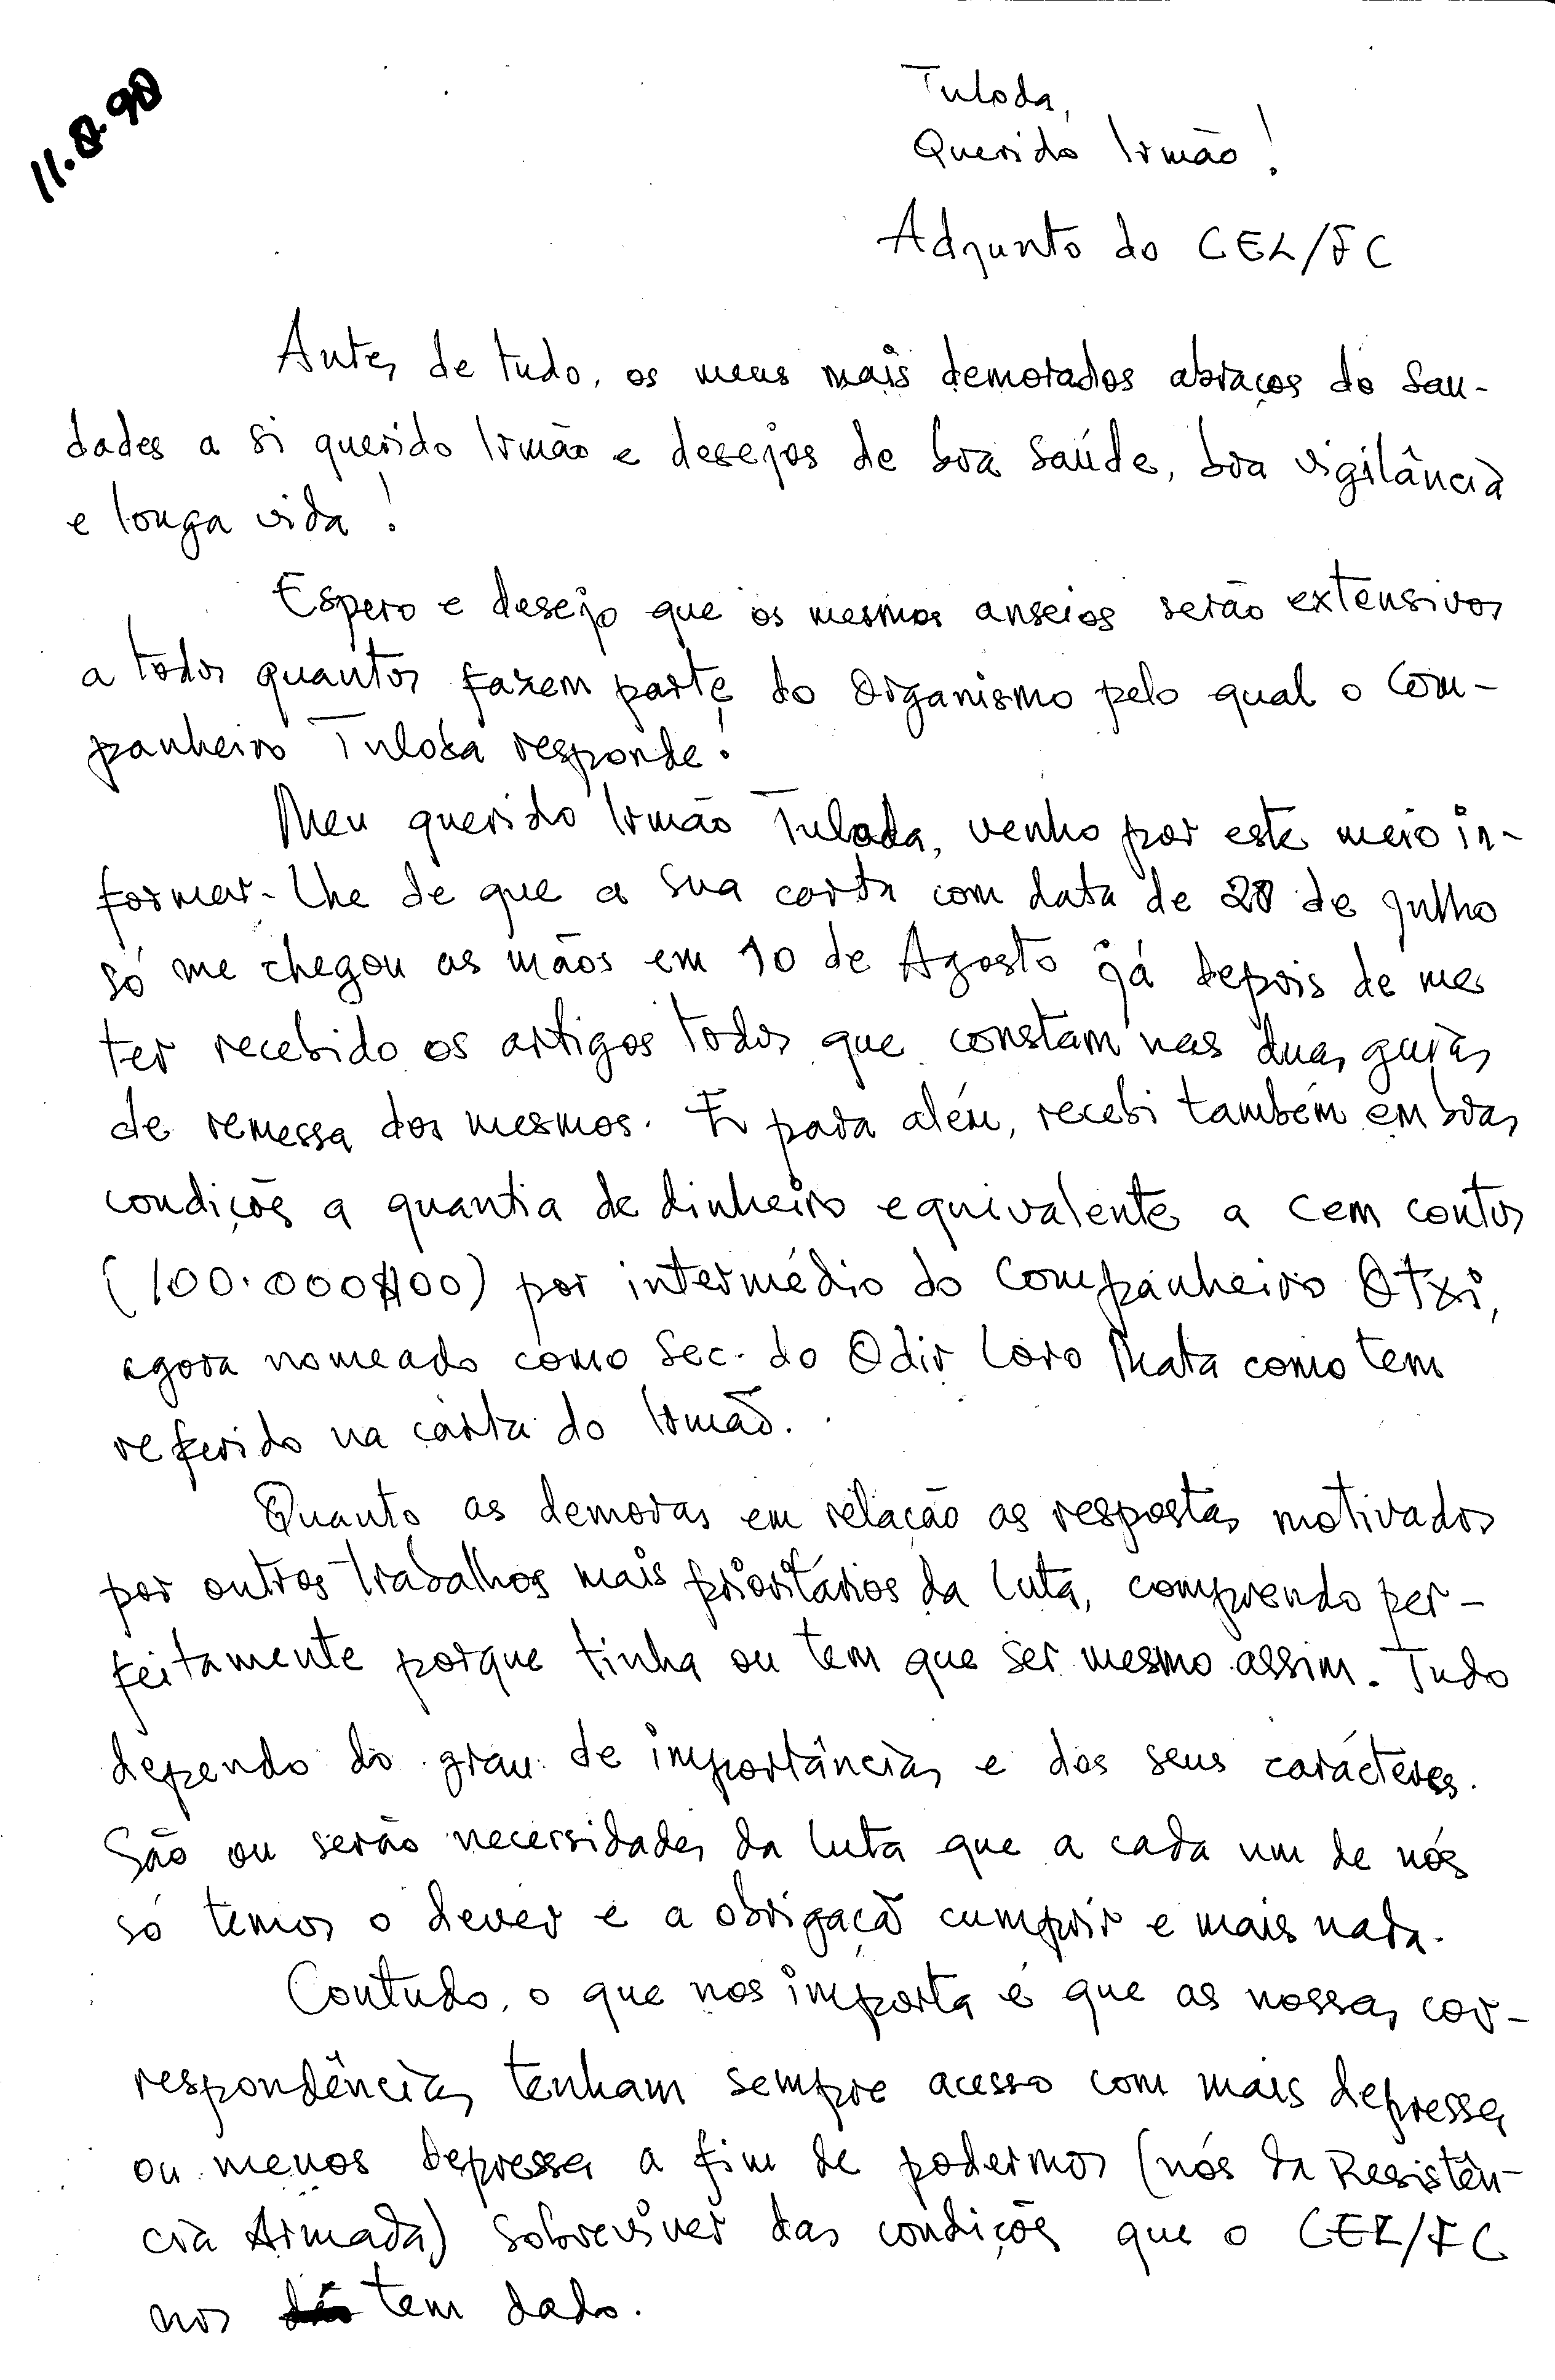 11.8.90
Tuloda,
Querido Irmão!
Adjunto do CEL/FC
Antes de tudo, os meus mais demorados abraços de sau-
dades a si querido Irmão e desejos de boa saúde, boa vigilância
e longa vida!
Espero e desejo que os mesmos anseios serão extensivos
a todos quantos fazem parte do Organismo pelo qual o Com-
panheiro Tuloda responde!
Meu querido Irmão Tuloda, venho por este meio in-
formar-lhe de que a sua carta com data de 28 de julho
só me chegou as mãos em 10 de Agosto já depois de me
ter recebido os artigos todos que constam nas duas guias
de remessa dos mesmos. E para além, recebi também em boas
condições a quantia de dinheiro equivalente a cem contos
(100.000$00) por intermédio do Companheiro Otxi,
agora nomeado como Sec. do Odir Loro Mata como tem
referido na carta do Irmão.
Quanto as demoras em relação as respostas motivados
por outros trabalhos mais prioritários da luta, comprendo per-
feitamente porque tinha ou tem que ser mesmo assim. Tudo
dependo do grau de importâncias e dos seus carácteres.
São ou serão necessidades da luta que a cada um de nós
só temos o dever e a obrigação cumprir e mais nada.
Contudo, o que nos importa é que as nossas cor-
respondências tenham sempre acesso com mais depressa
ou menos depressa a fim de podermos (nós da Resistên-
cia Armada) sobreviver das condições que o CEL/FC
nos tem dado.